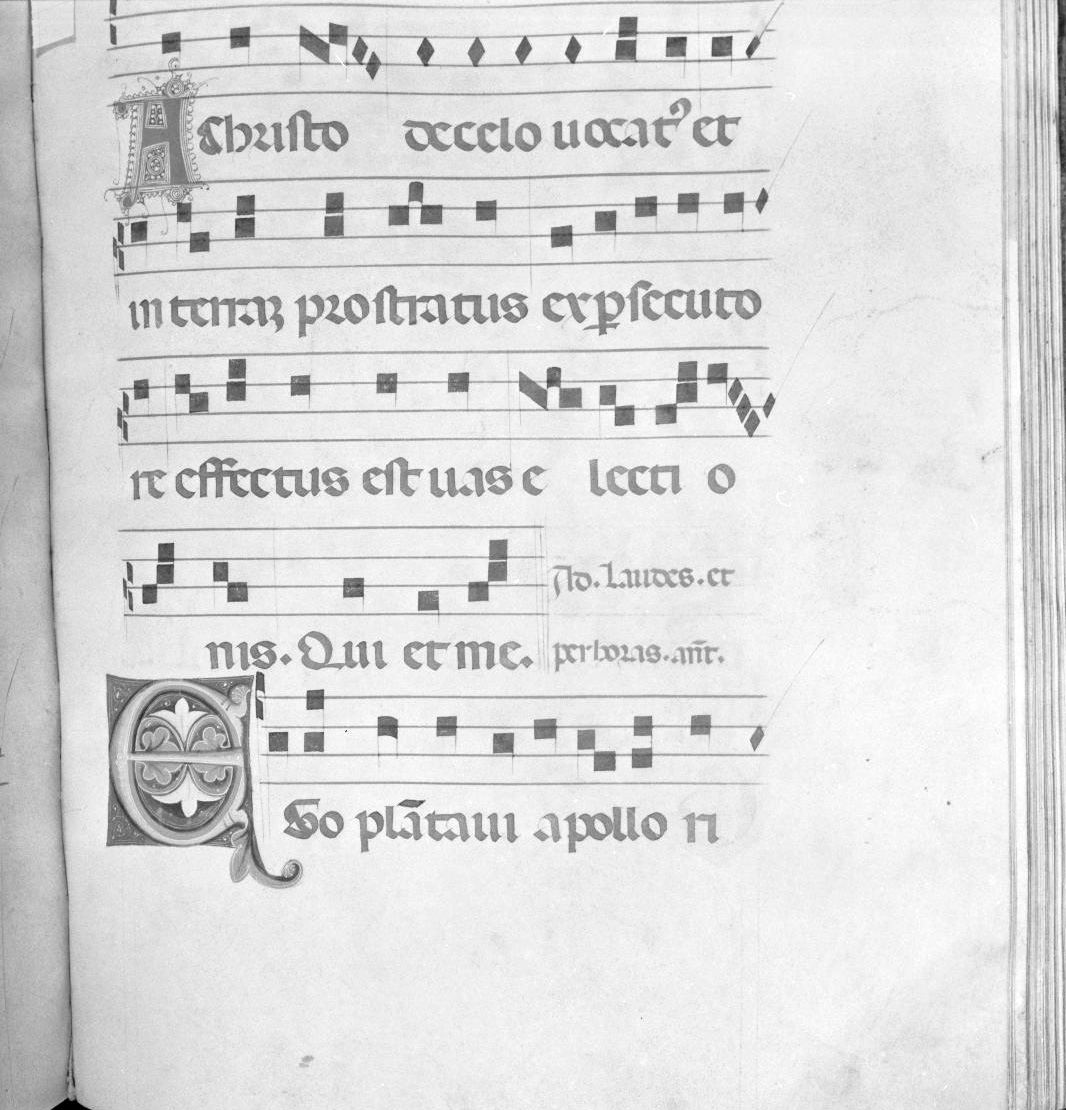 A Christo de celo uocatꝰ et
in terraꝫ prostratus ex ꝑsecuto
re effectus est uas e lecti o
nis. Qui et me.
Ad. Laudes. et
per horas. añt.
EGo plātaui apollo ri